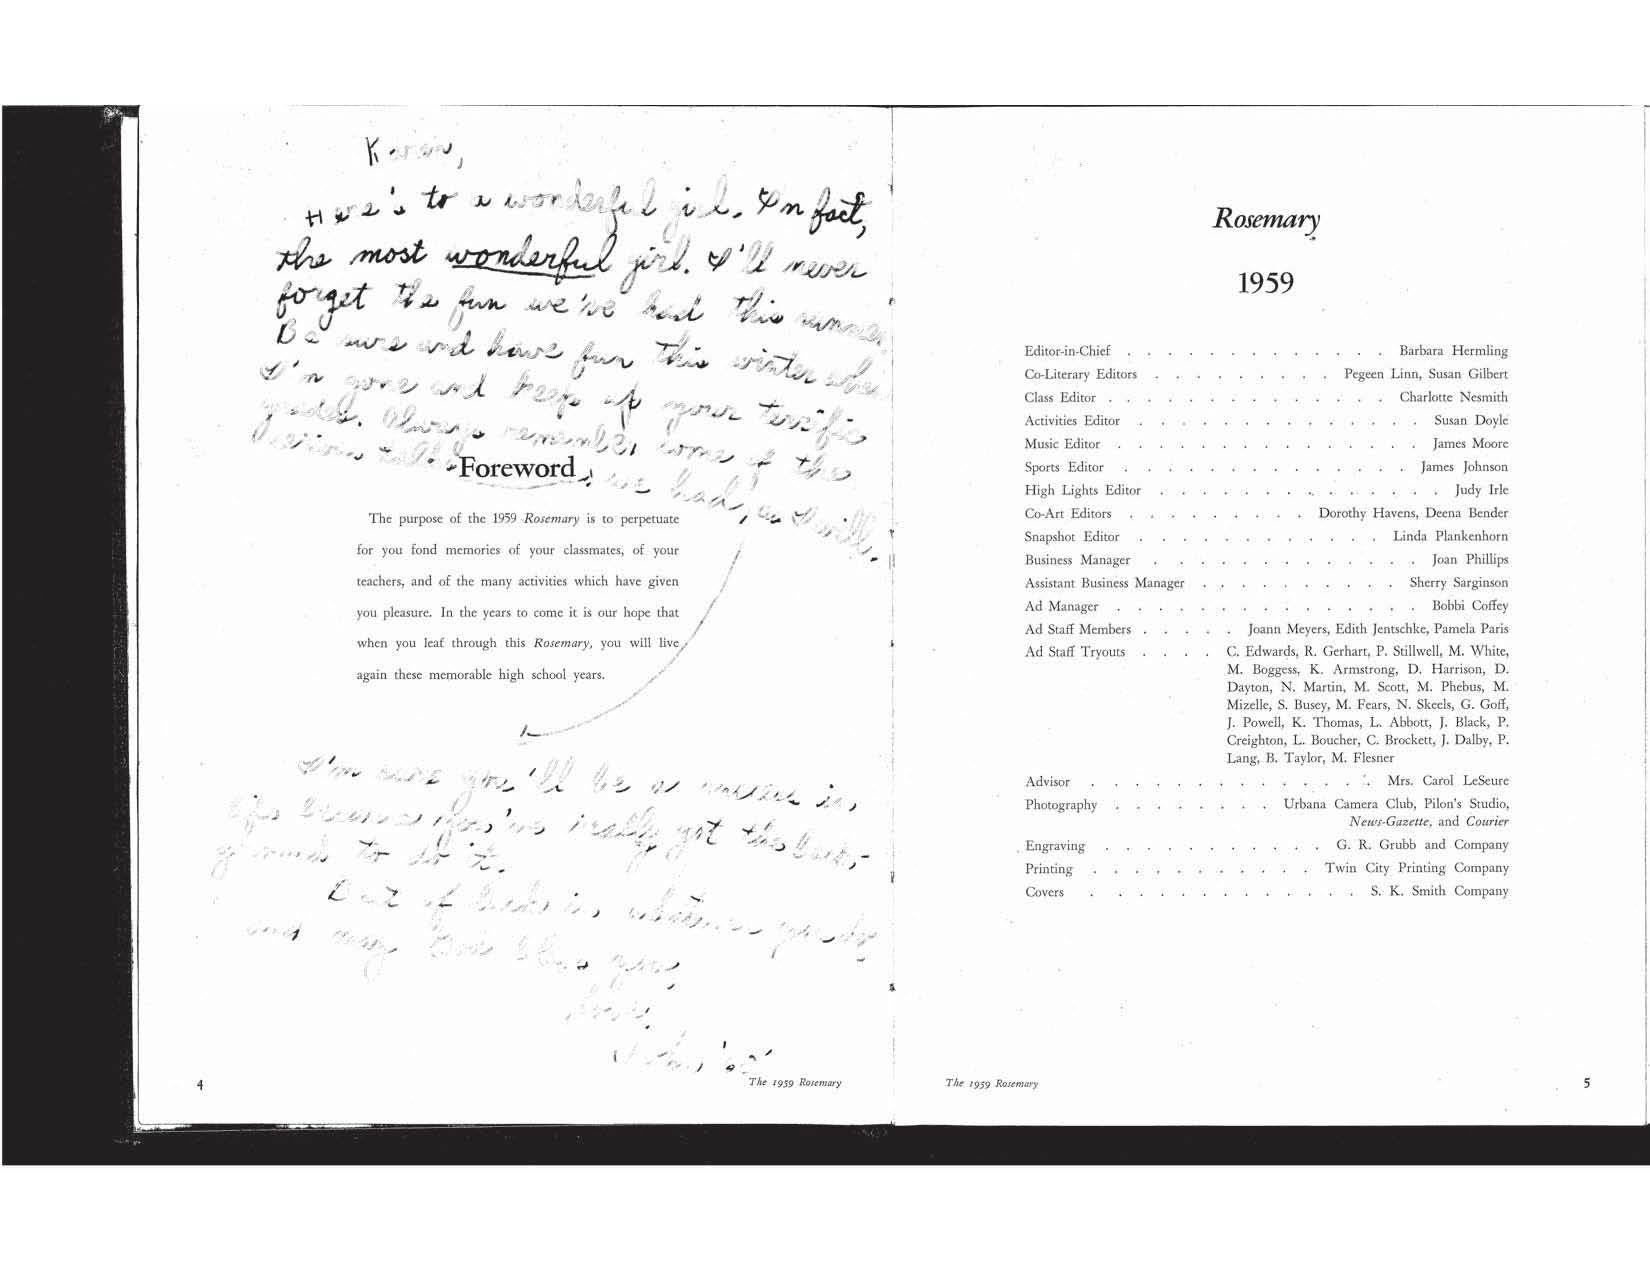 Karen,
Here's to a wonderful girl. In fact,
the most wonderful girl. I'll never
forget the fun we've had this summer.
Be sure and have fun this winter when
I'm gone and keep up your terrific
grades. Always remember some of the
serious talks
we had, as I will.
Foreword
The purpose of the 1959 Rosemary is to perpetuate
for you fond memories of your classmates, of your
teachers, and of the many activities which have given
you pleasure. In the years to come it is our hope that
when you leaf through this Rosemary, you will live
again these memorable high school years.
I'm sure you'll be a success in
life because you've really got the back-
ground to do it.
Best of luck in whatever you do
and may God bless you,
Love,
4
The 1959 Rosemary
Rosemary
1959
Editor-in-Chief . . . . . . . . . . . . . Barbara Hermling
Co-Literary Editors . . . . . . . . . Pegeen Linn, Susan Gilbert
Class Editor . . . . . . . . . . . . . . Charlotte Nesmith
Activities Editor . . . . . . . . . . . . . . Susan Doyle
Music Editor . . . . . . . . . . . . . . . James Moore
Sports Editor . . . . . . . . . . . . . . James Johnson
High Lights Editor . . . . . . . . . . . . . . Judy Irle
Co-Art Editors . . . . . . . . . Dorothy Havens, Deena Bender
Snapshot Editor . . . . . . . . . . . . Linda Plankenhorn
Business Manager . . . . . . . . . . . . . Joan Phillips
Assistant Business Manager . . . . . . . . . . Sherry Sarginson
Ad Manager . . . . . . . . . . . . . . . Bobbi Coffey
Ad Staff Members . . . . . Joann Meyers, Edith Jentschke, Pamela Paris
Ad Staff Tryouts . . . . C. Edwards, R. Gerhart, P. Stillwell, M. White,
M. Boggess, K. Armstrong, D. Harrison, D.
Dayton, N. Martin, M. Scott, M. Phebus, M.
Mizelle, S. Busey, M. Fears, N. Skeels, G. Goff,
J. Powell, K. Thomas, L. Abbott, J. Black, P.
Creighton, L. Boucher, C. Brockett, J. Dalby, P.
Lang, B. Taylor, M. Flesner
Advisor . . . . . . . . . . . . . . Mrs. Carol LeSeure
Photography . . . . . . . . Urbana Camera Club, Pilon's Studio,
News-Gazette, and Courier
Engraving . . . . . . . . . . . G. R. Grubb and Company
Printing . . . . . . . . . . . Twin City Printing Company
Covers . . . . . . . . . . . . . S. K. Smith Company
The 1959 Rosemary
5